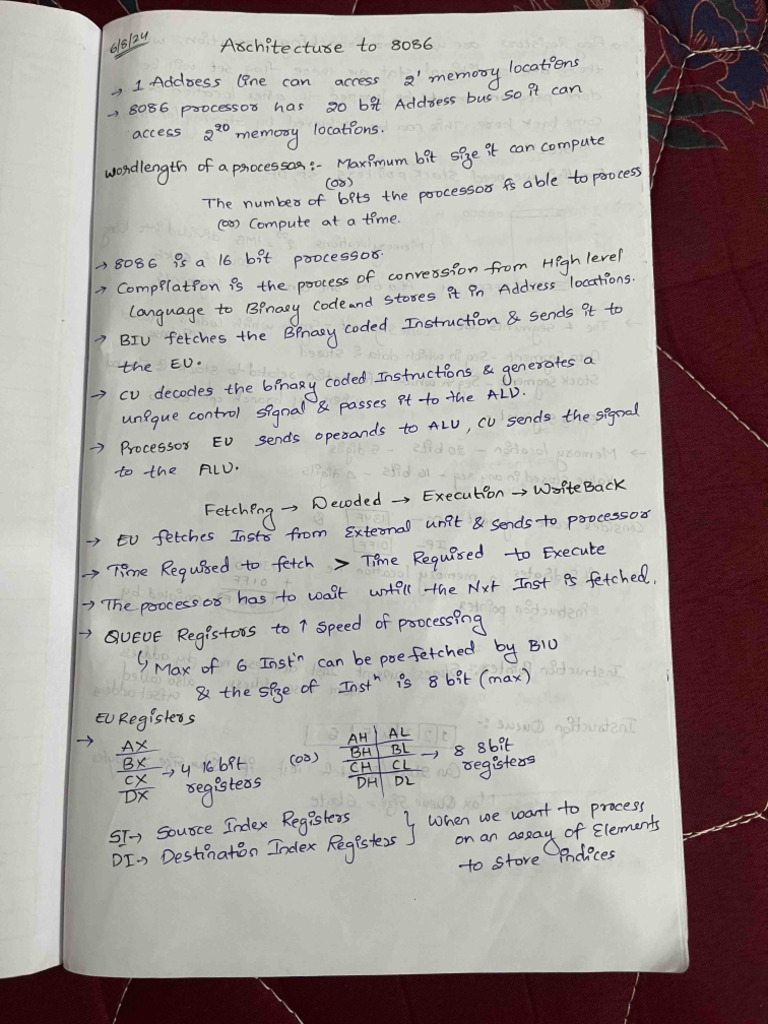 6/8/24
Architecture to 8086
→ 1 Address line can access 2¹ memory locations
→ 8086 processor has 20 bit Address bus so it can
access 2²⁰ memory locations.
Wordlength of a processor:- Maximum bit size it can compute
(or)
The number of bits the processor is able to process
(or) Compute at a time.
→ 8086 is a 16 bit processor.
→ Compilation is the process of conversion from High level
Language to Binary Code and stores it in Address locations.
→ BIU fetches the Binary Coded Instruction & sends it to
the EU.
→ CU decodes the binary coded Instructions & generates a
unique control signal & passes it to the ALU.
→ Processor EU sends operands to ALU, CU sends the signal
to the ALU.
Fetching → Decoded → Execution → WriteBack
→ EU fetches Instr from External unit & sends to processor
→ Time Required to fetch > Time Required to Execute
→ The processor has to wait untill the Nxt Inst is fetched.
→ QUEUE Registors to ↑ speed of processing
↳ Max of 6 Instⁿ can be prefetched by BIU
& the size of Instⁿ is 8 bit (max)
EU Registers
→ AX
BX
CX
DX
→ 4 16 bit
registers
(or)
AH | AL
BH | BL
CH | CL
DH | DL
→ 8 8bit
registers
SI → Source Index Registers
DI → Destination Index Registers
} When we want to process
on an array of Elements
to store indices